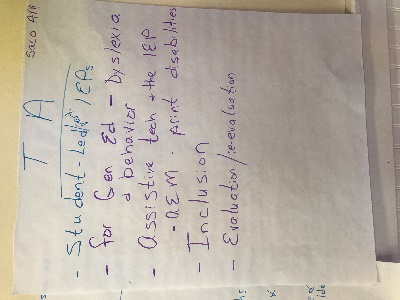 T A
- Student-Led IEPs
- for Gen Ed - Dyslexia
& behavior
- Assistive tech & the IEP
- AEM · print disabilities
- Inclusion
- Evaluation/re-evaluation